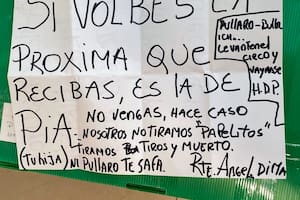 SI VOLBES LA
PROXIMA QUE
RECIBAS, ES LA DE
PIA.
(TU HIJA)
NO VENGAS, HACE CASO
NOSOTROS NO TIRAMOS "PAPELITOS"
TIRAMOS TIROS Y MUERTO.
NI PULLARO TE SAFA.
RTE. ANGEL DIMA
PULLARO-
LEVANTEN EL
CIRCO Y
VAYANSE
H.D.P.